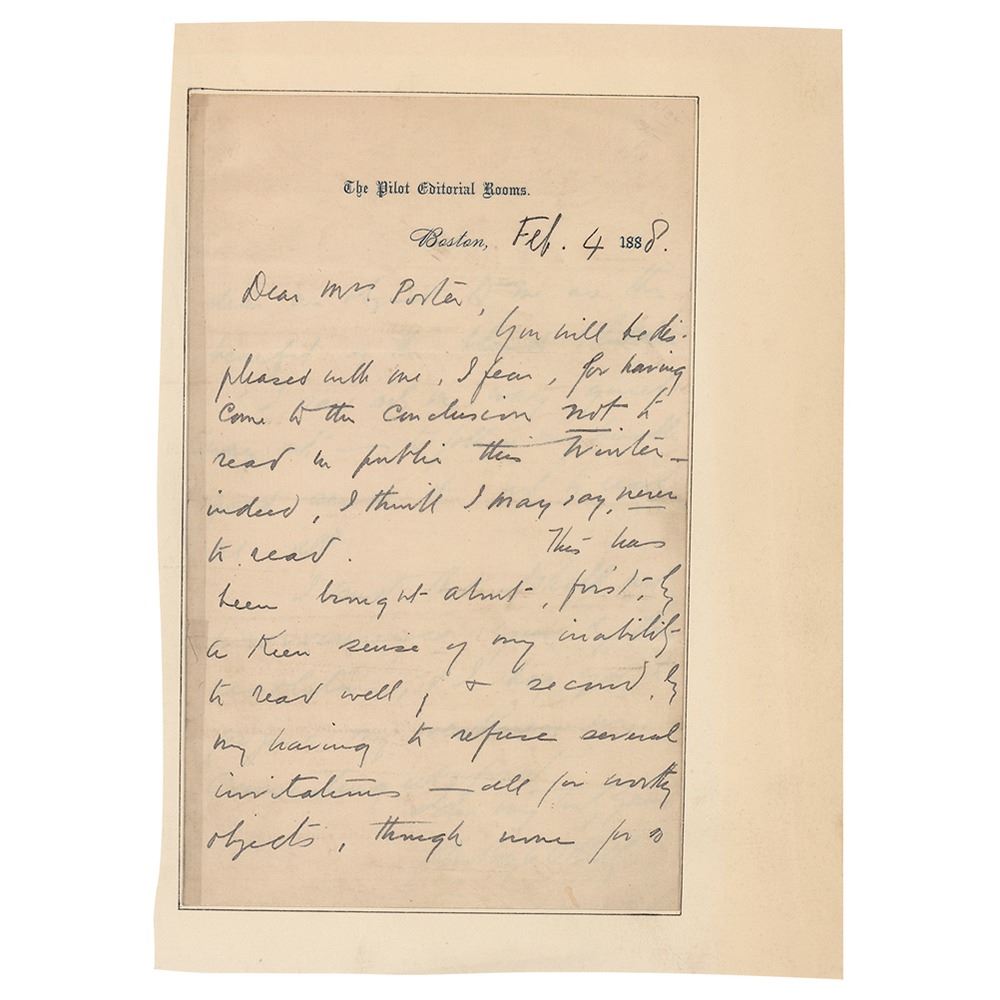 The Pilot Editorial Rooms.
Boston, Feb. 4 1888.
Dear Mrs. Porter,
You will be dis-
pleased with me, I fear, for having
come to the conclusion not to
read in public this Winter—
indeed, I think I may say, never
to read. This has
been brought about, first, by
a Keen sense of my inability
to read well; & second, by
my having to refuse several
invitations — all for worthy
objects, though none for so